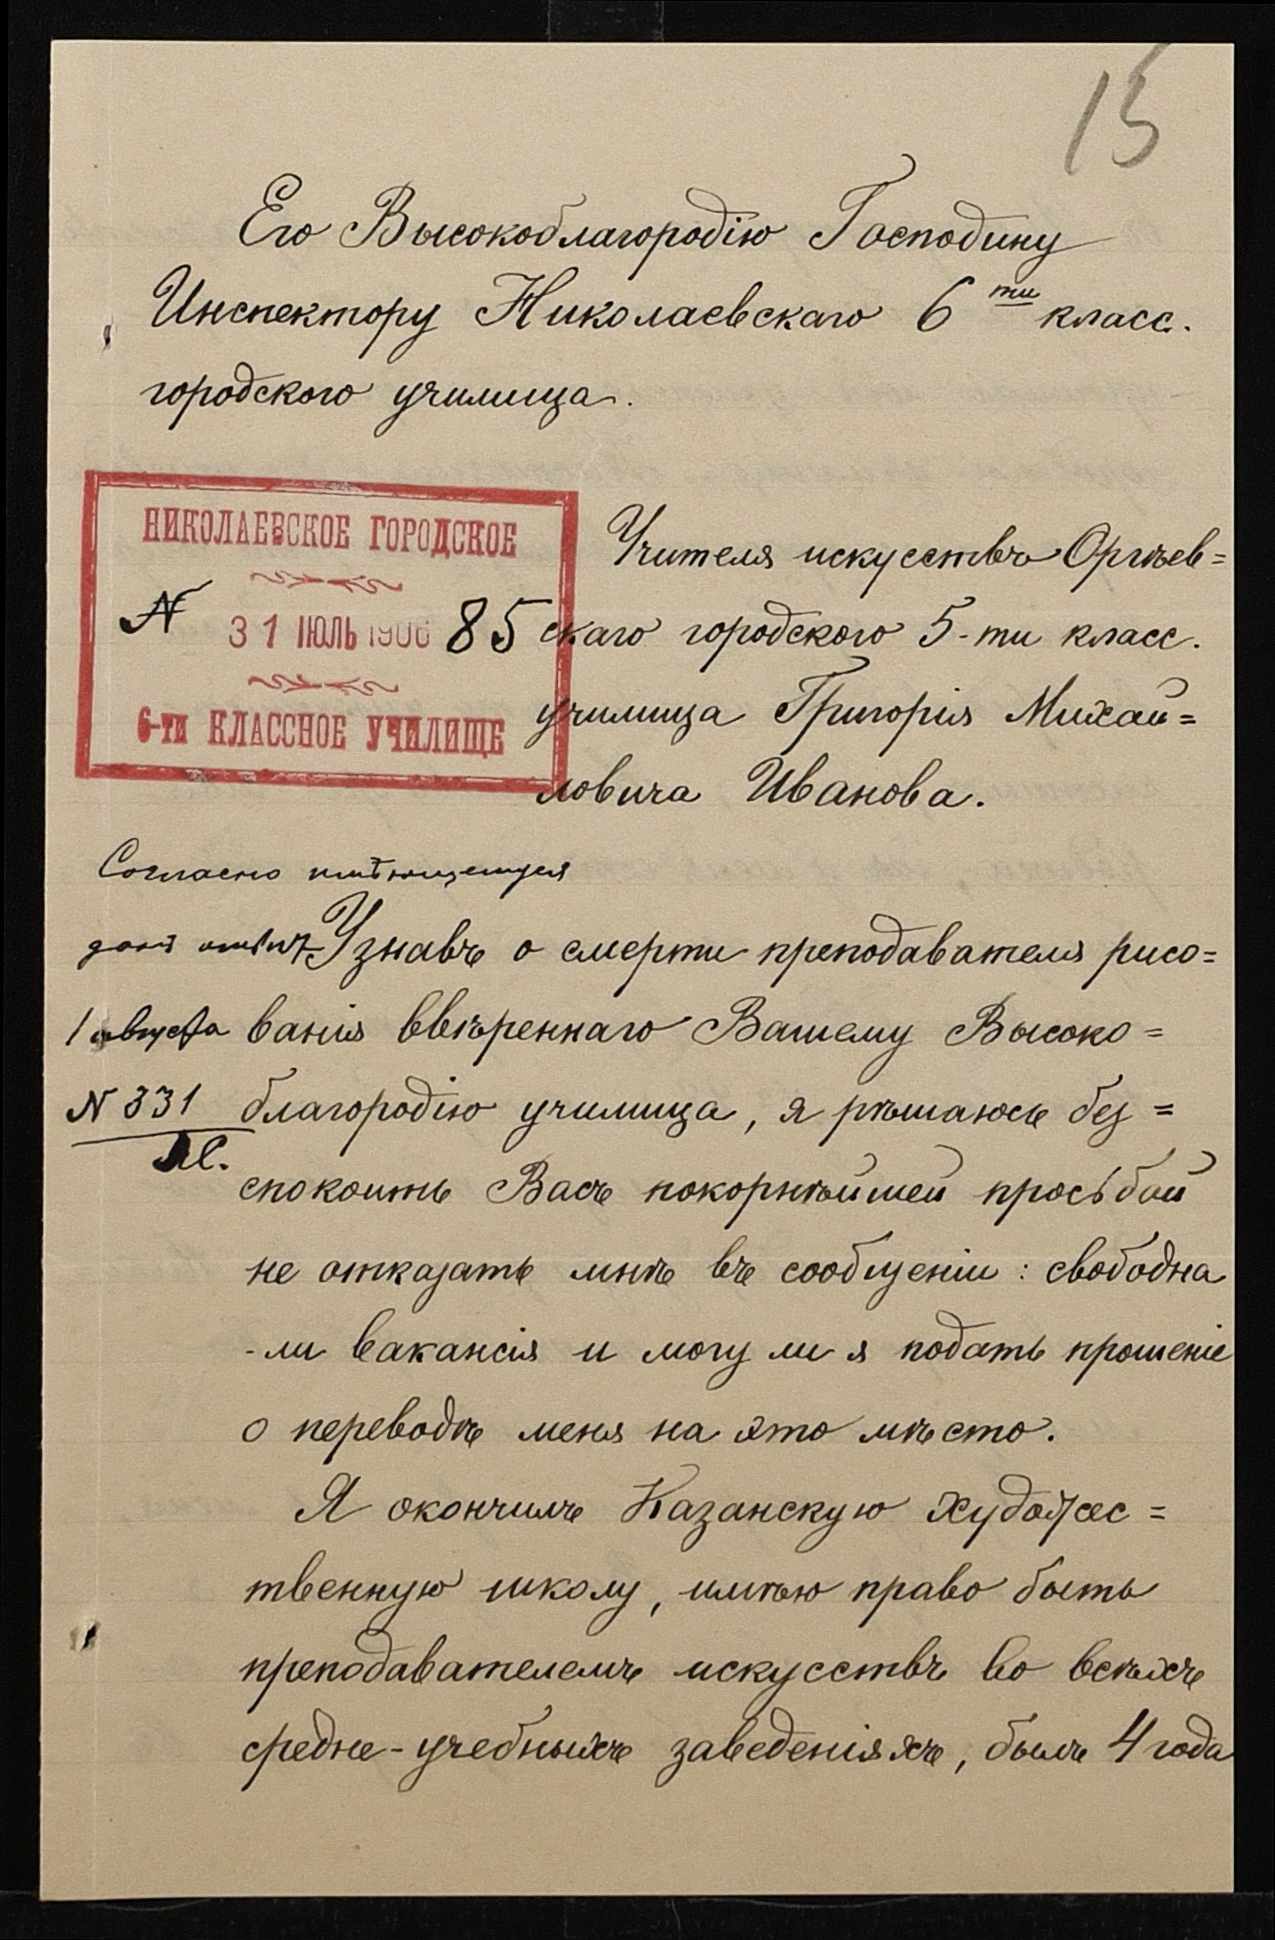 15
Его Высокоблагородію Господину
Инспектору Николаевскаго 6 ти класс.
городского училища.
НИКОЛАЕВСКОЕ ГОРОДСКОЕ
N 31 ІЮЛЬ 1906 85
6-ти КЛАССНОЕ УЧИЛИЩЕ
Учителя искусствъ Оргѣев=
скаго городского 5-ти класс.
училища Григорія Михай=
ловича Иванова.
Согласно имѣющемуся
данъ отвѣтъ
1 августа
N 331
Узнавъ о смерти преподавателя рисо=
ванія ввѣреннаго Вашему Высоко=
благородію училища, я рѣшаюсь без=
спокоить Васъ покорнѣйшей просьбой
не отказать мнѣ въ сообщеніи: свободна
-ли вакансія и могу ли я подать прошеніе
о переводѣ меня на это мѣсто.
Я окончилъ Казанскую художес=
твенную школу, имѣю право быть
преподавателемъ искусствъ во всѣхъ
средне-учебныхъ заведеніяхъ, былъ 4 года